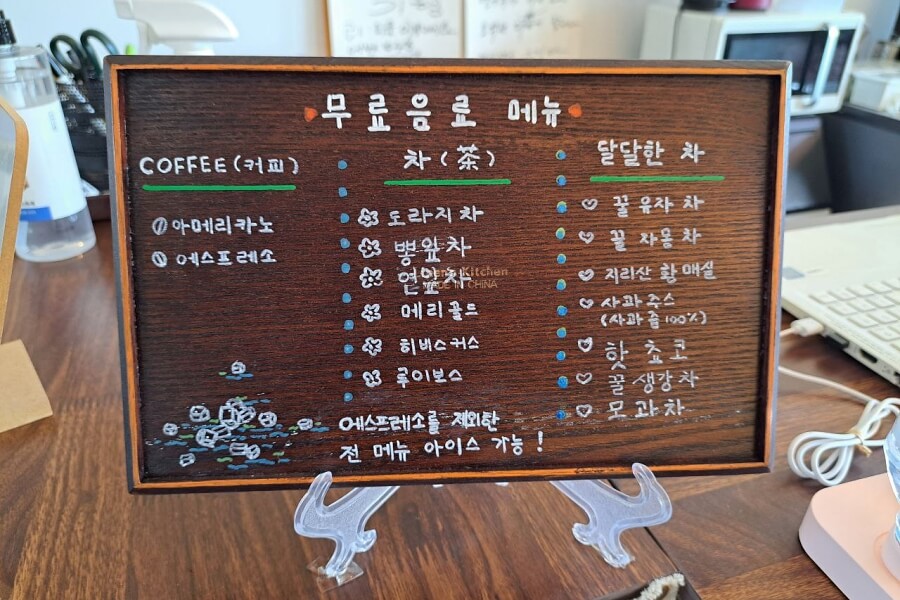 무료음료 메뉴
COFFEE(커피)
아메리카노
에스프레소
차(茶)
도라지차
뽕잎차
연잎차
메리골드
히비스커스
루이보스
달달한 차
꿀 유자 차
꿀 자몽 차
지리산 황매실
사과주스
(사과즙 100%)
핫쵸코
꿀생강차
모과차
에스프레소를 제외한
전 메뉴 아이스 가능!
Kitchen
MADE IN CHINA